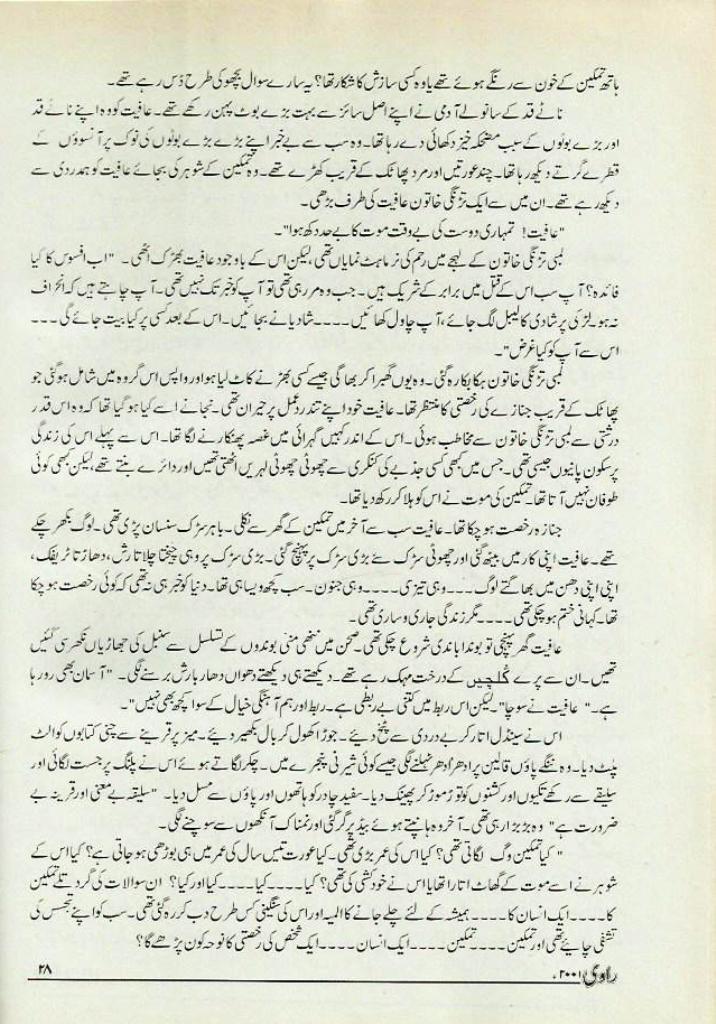 ہاتھ تمکین کے خون سے رنگے ہوئے تھے یا وہ کسی سازش کا شکار تھا؟ یہ سارے سوال بچھو کی طرح ڈس رہے تھے۔
ناٹے قد کے سانولے آدمی نے اپنے اصل سائز سے بہت بڑے بوٹ پہن رکھے تھے۔ عافیت کو وہ اپنے ناٹے قد
اور بڑے بوٹوں کے سبب مضحکہ خیز دکھائی دے رہا تھا۔ وہ سب سے بے خبر اپنے بڑے بڑے بوٹوں کی نوک پر آنسوؤں کے
قطرے گرتے دیکھ رہا تھا۔ چند عورتیں اور مرد پھاٹک کے قریب کھڑے تھے۔ وہ تمکین کے شوہر کی بجائے عافیت کو ہمدردی سے
دیکھ رہے تھے۔ ان میں سے ایک تڑنگی خاتون عافیت کی طرف بڑھی۔
"عافیت! تمہاری دوست کی بے وقت موت کا بے حد دکھ ہوا"۔
لمبی تڑنگی خاتون کے لہجے میں رحم کی نرماہٹ نمایاں تھی، لیکن اس کے باوجود عافیت بھڑک اٹھی۔ "اب افسوس کا کیا
فائدہ؟ آپ سب اس کے قتل میں برابر کے شریک ہیں۔ جب وہ مر رہی تھی تو آپ کو خبر تک نہیں تھی۔ آپ چاہتے ہیں کہ انحراف
نہ ہو۔ لڑکی پر شادی کا لیبل لگ جائے، آپ چاول کھائیں۔۔۔۔ شادیانے بجائیں۔ اس کے بعد کسی پر کیا بیت جائے گی۔۔۔
اس سے آپ کو کیا غرض"۔
لمبی تڑنگی خاتون ہکا بکا رہ گئی۔ وہ یوں گھبرا کر بھاگی جیسے کسی بھڑ نے کاٹ لیا ہو اور واپس اس گروہ میں شامل ہو گئی جو
پھاٹک کے قریب جنازے کی رخصتی کا منتظر تھا۔ عافیت خود اپنے تند رد عمل پر حیران تھی۔ نجانے اسے کیا ہو گیا تھا کہ وہ اس قدر
درشتی سے لمبی تڑنگی خاتون سے مخاطب ہوئی۔ اس کے اندر کہیں گہرائی میں غصہ پھنکارنے لگا تھا۔ اس سے پہلے اس کی زندگی
پرسکون پانیوں جیسی تھی۔ جس میں کبھی کسی جذبے کی کنکری سے چھوٹی چھوٹی لہریں اٹھتی تھیں اور دائرے بنتے تھے، لیکن کبھی کوئی
طوفان نہیں آتا تھا۔ تمکین کی موت نے اس کو ہلا کر رکھ دیا تھا۔
جنازہ رخصت ہو چکا تھا۔ عافیت سب سے آخر میں تمکین کے گھر سے نکلی۔ باہر سڑک سنسان پڑی تھی۔ لوگ بکھر چکے
تھے۔ عافیت اپنی کار میں بیٹھ گئی اور چھوٹی سڑک سے بڑی سڑک پر پہنچ گئی۔ بڑی سڑک پر وہی چیختا چلاتا رش، دھاڑتا ٹریفک،
اپنی اپنی دھن میں بھاگتے لوگ۔۔۔ وہی تیزی۔۔۔۔ وہی جنون۔ سب کچھ ویسا ہی تھا۔ دنیا کو خبر ہی نہ تھی کہ کوئی رخصت ہو چکا
تھا۔ کہانی ختم ہو چکی تھی۔۔۔۔ مگر زندگی جاری و ساری تھی۔
عافیت گھر پہنچی تو بوندا باندی شروع چکی تھی۔ صحن میں ننھی منی بوندوں کے تسلسل سے سنبل کی جھاڑیاں نکھر سی گئیں
تھیں۔ ان سے پرے گلچیں کے درخت مہک رہے تھے۔ دیکھتے ہی دیکھتے دھواں دھار بارش برسنے لگی۔ "آسمان بھی رو رہا
ہے۔" عافیت نے سوچا"۔ لیکن اس ربط میں کتنی بے ربطی ہے۔ ربط اور ہم آہنگی خیال کے سوا کچھ بھی نہیں"۔
اس نے سینڈل اتار کر بے دردی سے پٹخ دیئے۔ جوڑا کھول کر بال بکھیر دیئے۔ میز پر قرینے سے چنی کتابوں کو الٹ
پلٹ دیا۔ وہ ننگے پاؤں قالین پر ادھر اُدھر ٹہلنے لگی جیسے کوئی شیرنی پنجرے میں۔ چکر لگاتے ہوئے اس نے پلنگ پر جست لگائی اور
سلیقے سے رکھے تکیوں اور کشنوں کو توڑ موڑ کر پھینک دیا۔ سفید چادر کو ہاتھوں اور پاؤں سے مسل دیا۔ "سلیقہ بے معنی اور قرینہ بے
ضرورت ہے" وہ بڑبڑا رہی تھی۔ آخر وہ ہانپتے ہوئے بیڈ پر گر گئی اور نمناک آنکھوں سے سوچنے لگی۔
"کیا تمکین وگ لگاتی تھی؟ کیا اس کی عمر بڑی تھی۔ کیا عورت تیس سال کی عمر میں ہی بوڑھی ہو جاتی ہے؟ کیا اس کے
شوہر نے اسے موت کے گھاٹ اتارا تھا یا اس نے خودکشی کی تھی؟ کیا۔۔۔۔ کیا۔۔۔۔ کیا اور کیا؟ ان سوالات کی گرد تلے تمکین
کا۔۔۔۔ ایک انسان کا۔۔۔۔ ہمیشہ کے لئے چلے جانے کا المیہ اور اس کی سنگینی کس طرح دب کر رہ گئی تھی۔ سب کو اپنے تجسس کی
تشفی چاہیے تھی اور تمکین۔۔۔۔ تمکین۔۔۔۔ ایک انسان۔۔۔۔ ایک شخص کی رخصتی کا نوحہ کون پڑھے گا؟
راوی ۲۰۰۱ء
۲۸